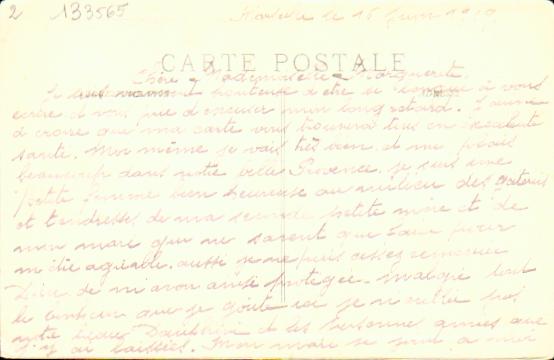 2 133565
Marseille le 15 Juin 19
CARTE POSTALE
Chère Mademoiselle Marguerite
Je suis vraiment honteuse d'être si longue à vous
écrire et vous prie d'excuser mon long retard. J'aime
à croire que ma carte vous trouvera tous en excellente
santé. Moi même je vais très bien et me plais
beaucoup dans notre belle Provence, je suis une
petite femme bien heureuse au milieu des gateries
et tendresses de ma seconde petite mère et de
mon mari qui ne savent que faire pour
m'être agréable. aussi je ne puis cesser remercier
Dieu de m'avoir ainsi protégée. Malgré tout
le bonheur que je goûte ici je n'oublie pas
notre Dauphiné et les personnes amies que
j'y ai laissées. Mon mari se joint à moi